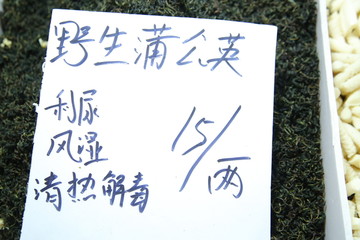 野生蒲公英
利尿
风湿
清热解毒
15/两